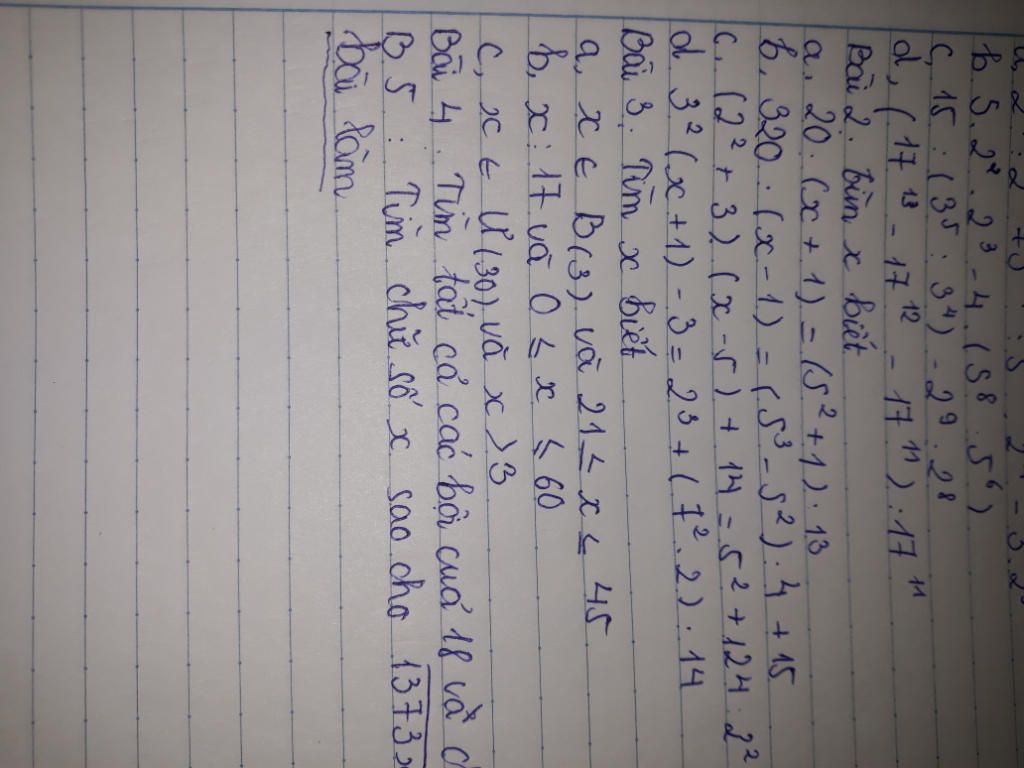 b, 5.2² . 2³ - 4. (5⁸ . 5⁶)
c, 15 : (3⁵ : 3⁴) - 2⁹ . 2⁸
d, (17¹³ - 17¹² - 17¹¹) . 17¹¹
Bài 2. tìm x biết
a, 20. (x + 1) = (5² + 1) . 13
b, 320 . (x - 1) = (5³ - 5²) . 4 + 15
c, (2² + 3) (x - 5) + 14 = 5² + 124 : 2²
d 3² (x + 1) - 3 = 2³ + (7² . 2) . 14
Bài 3. Tìm x biết
a, x ∈ B(3) và 21 ≤ x ≤ 45
b, x ⋮ 17 và 0 ≤ x ≤ 60
c, x ∈ Ư(30) và x > 3
Bài 4. Tìm tất cả các bội cuả 18 và
B 5 : Tìm chữ số x sao cho 1373
bài làm